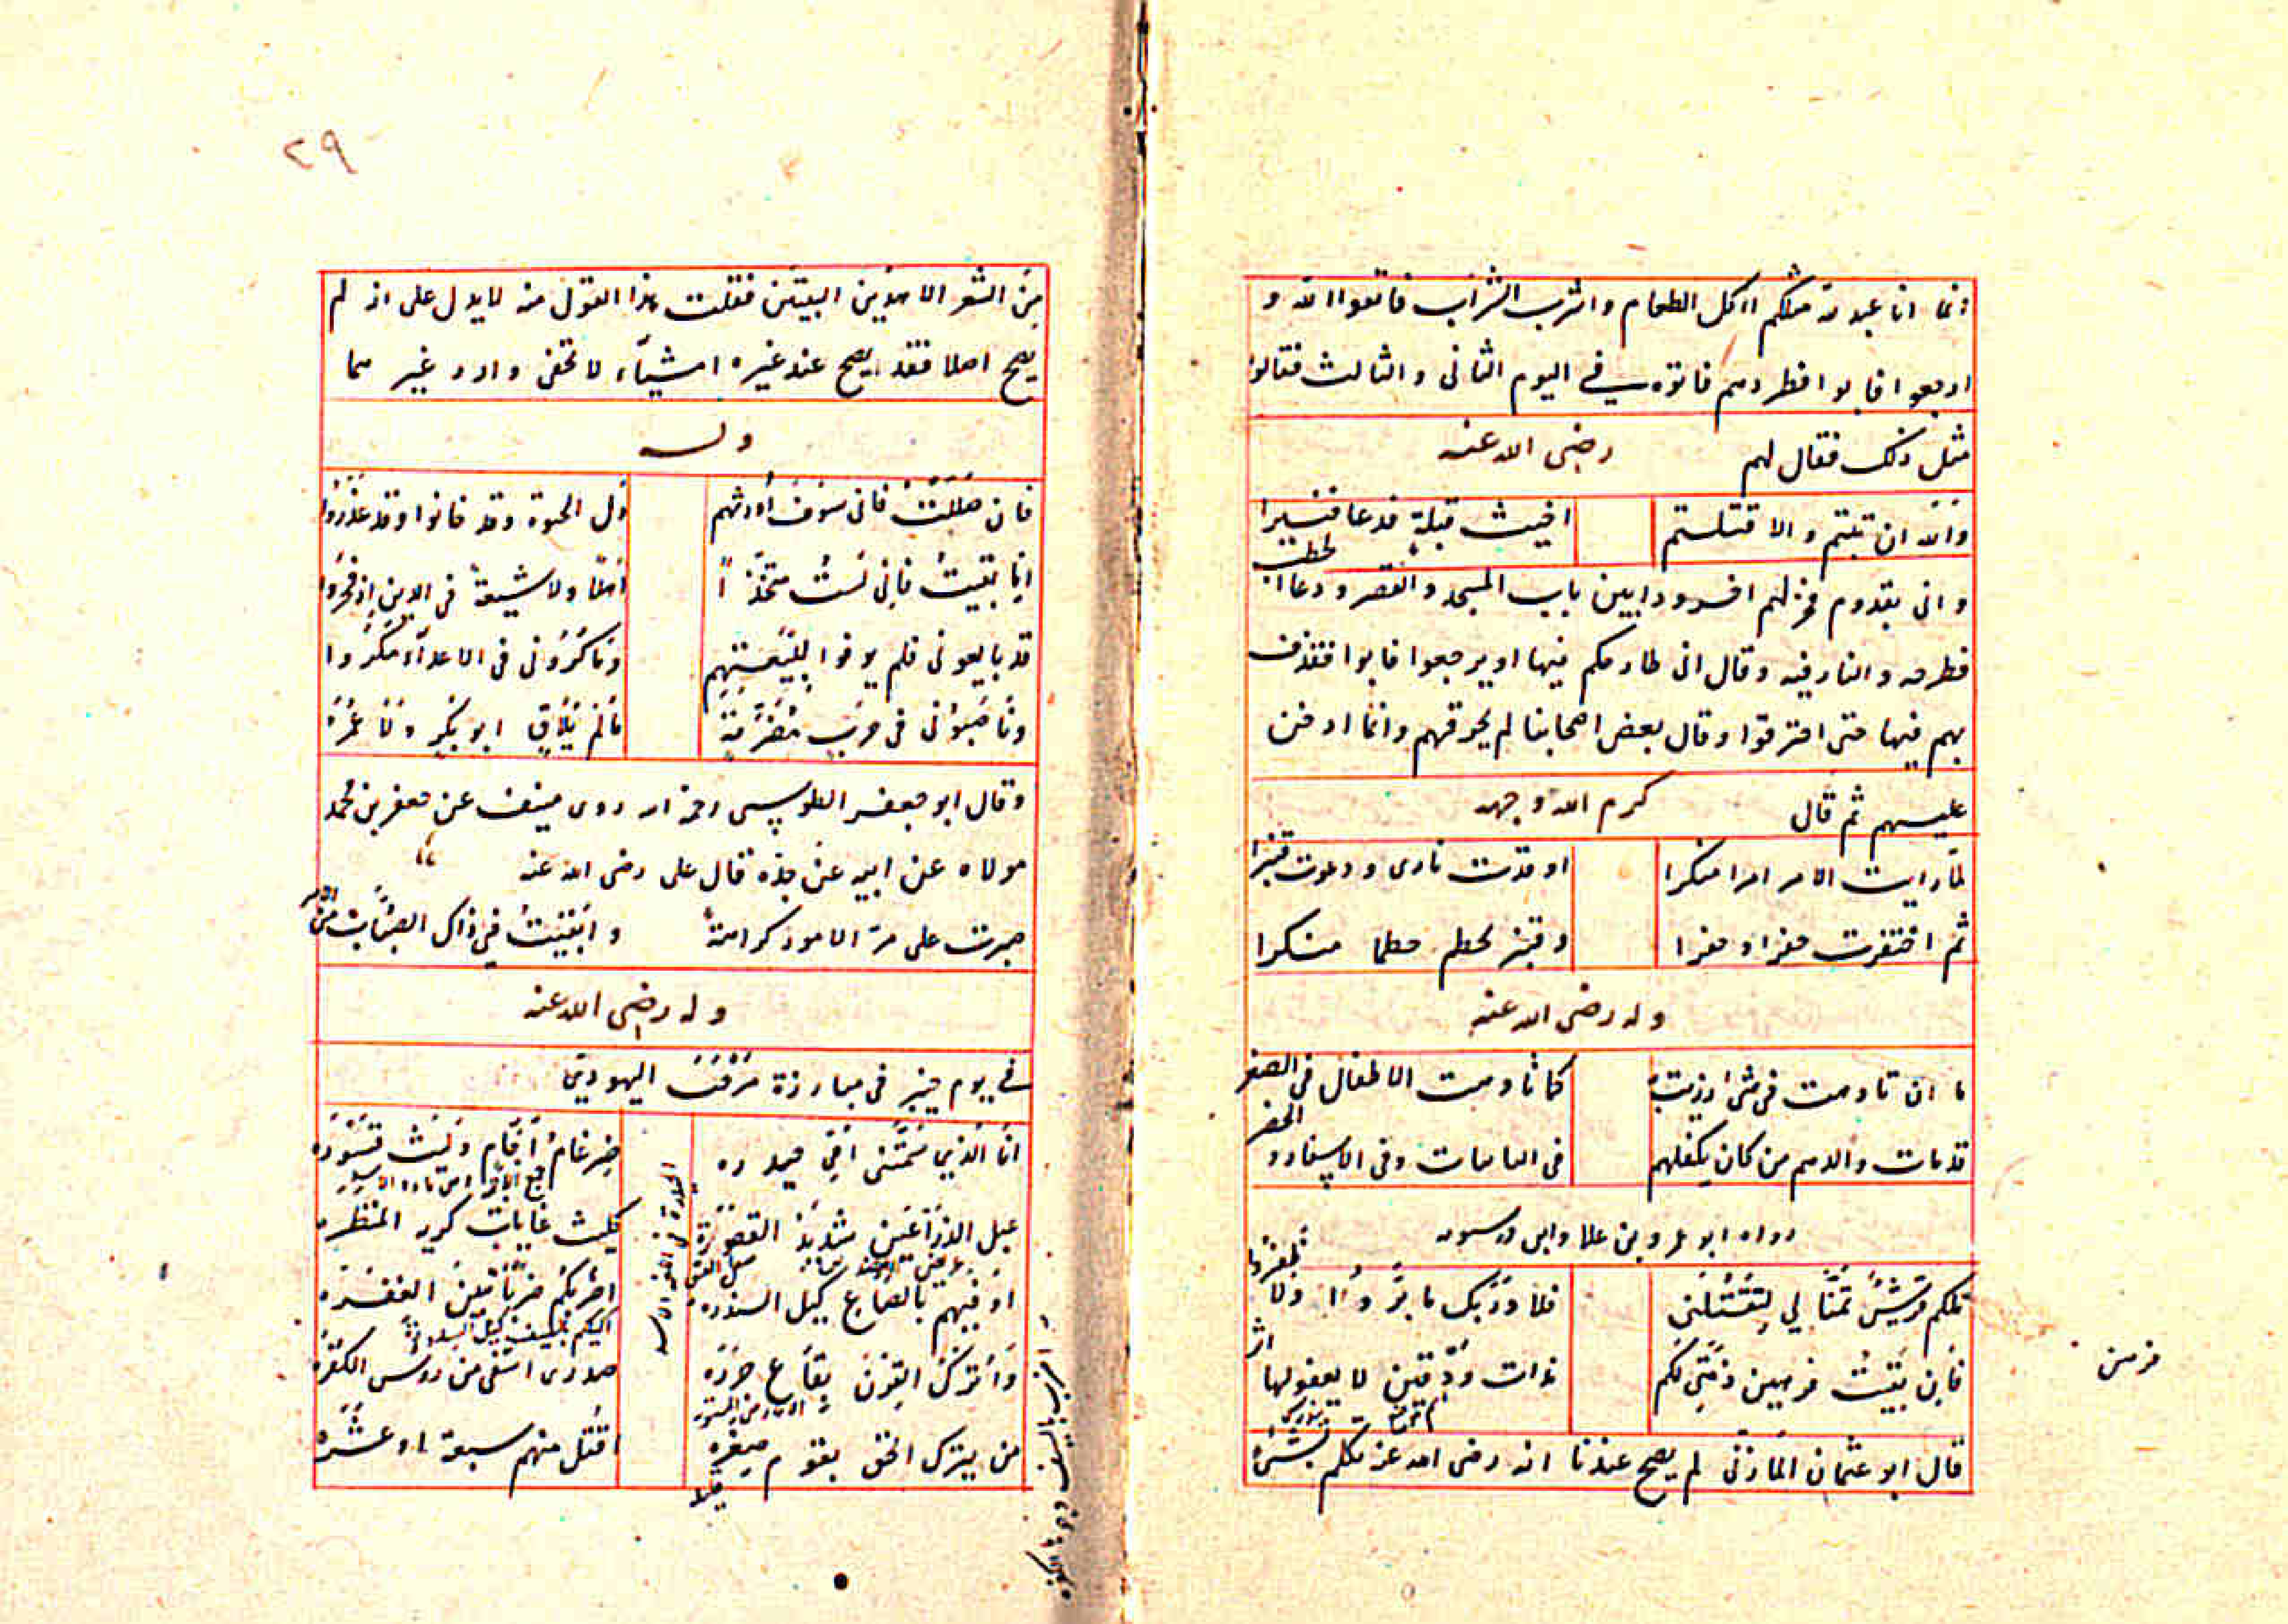 انما انا عبد لله مثلكم آكل الطعام واشرب الشراب فاتقوا الله و
ارجعوا فابوا فطردهم فاتوه في اليوم الثانى والثالث فقالوا
مثل ذلك فقال لهم رضى الله عنه
والله ان تبتم والا قتلتم
اخيث قبلة فدعا قنبرا
وانى بقدوم فحز لهم اخدودا بين باب المسجد والقصر ودعا
لحطب
فطرحه والنار فيه وقال انى طارحكم فيها او يرجعوا فابوا فقذف
بهم فيها حتى احترقوا وقال بعض اصحابنا لم يحرقهم وانما ادخن
عليهم ثم قال كرم الله وجهه
لما رايت الامر امرا منكرا
اوقدت نارى ودعوت قنبرا
ثم احتفرت حفرا وحفرا
وقنبر يحطم حطما منكرا
وله رضى الله عنه
ما ان تاوهت فى شئ رزيت به
كما تاوهت الاطفال فى الصغر
قد مات والدهم من كان يكفلهم
فى النائبات وفى الاسفار و
الحضر
رواه ابو عمرو بن علا
تلكم قريش تمنا لي لتقتلنى
فلا وربك ما بروا ولا
ظفروا
فان بقيت فرهين ذمتي لكم
بذات ودقين لا يعفو لها
اثر
قال ابو عثمان المازنى لم يصح عندنا انه رضى الله عنه تكلم بشئ
فرهن
٢٩
من الشعر الا هذين البيتين فقلت هذا القول منه لا يدل على انه لم
يصح اصلا فقد يصح عند غيره اشياء لا تخفى وارد غير مما
وله
فان هلكت فانى سوف اورثهم
ذل الحيوة وقد خانوا وقد غدروا
اما بقيت فانى لست متخذا
اهلا ولا شيعة فى الدين اذ فجروا
قد بايعونى فلم يوفوا ببيعتهم
وماكرونى فى الاعداء مكروا
وناصبونى فى حرب مضرمة
ما لم يلاق ابو بكر ولا عمر
وقال ابو جعفر الطوسى رحمه الله روى عن جعفر بن محمد
مولاه عن ابيه عن جده قال على رضى الله عنه
صبرت على مر الامور كرامة وابقيت في ذاك الصباب من
الامر
وله رضى الله عنه
في يوم خيبر فى مبارزة مرحب اليهودى
انا الذي سمتنى امي حيدره
ضرغام اجام وليث قسوره
عبل الذراعين شديد القصره
كليث غابات كريه المنظره
اوفيهم بالصاع كيل السندره
اضربكم ضربا يبين الفقره
اكيلكم بالسيف كيل السندره
واترك القرن بقاع جزره
صدرى اشفى من رؤس الكفره
من يترك الحق يقوم صغره
اقتل منهم سبعة او عشره